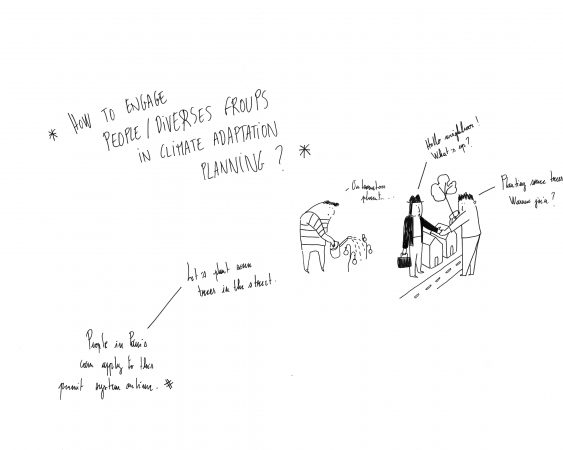 * HOW TO ENGAGE
PEOPLE / DIVERSES GROUPS
IN CLIMATE ADAPTATION
PLANNING ? *
Hello neighbour !
What's up ?
Planting some trees
Wanna join ?
plant...
Let's plant some
trees in the street.
People in Paris
can apply to this
permit system online. *